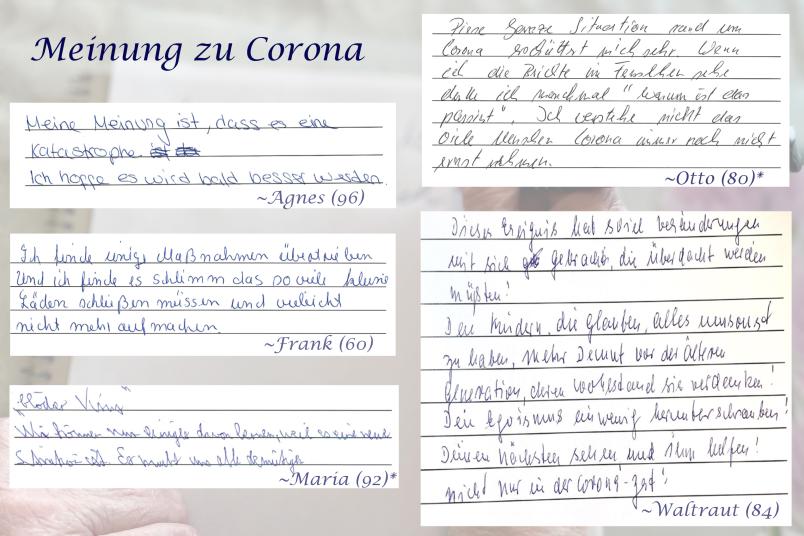 Meinung zu Corona
Meine Meinung ist, dass es eine
Katastrophe
Ich hoppe es wird bald besser werden.
~Agnes (96)
Ich finde einige Maßnahmen übertrieben
und ich finde es schlimm das so viele kleine
Läden schließen müssen und vieleicht
nicht mehr aufmachen.
~Frank (60)
"Blöder Virus"
Wir können nur einiges davon lernen, weil es eine neue
ist. Er macht uns alle demütiger
~Maria (92)*
Diese Situation rund um
Corona erschüttert mich sehr. Wenn
ich die Brichte im Fernsehen sehe
denke ich manchmal "warum ist das
passiert". Ich verstehe nicht das
viele Menschen Corona immer noch nicht
ernst nehmen.
~Otto (80)*
Dieses Ereignis hat soviel veränderungen
mit sich gebracht, die überdacht werden
müßten!
Den Kindern, die glauben, alles umsonst
zu haben, mehr Demut vor der Älteren
Generation, deren wohlstand sie verdanken!
Den Egoismus ein wenig herunterschrauben!
Deinen Nächsten sehen und ihm helfen!
nicht nur in der Corona-Zeit!
~Waltraut (84)